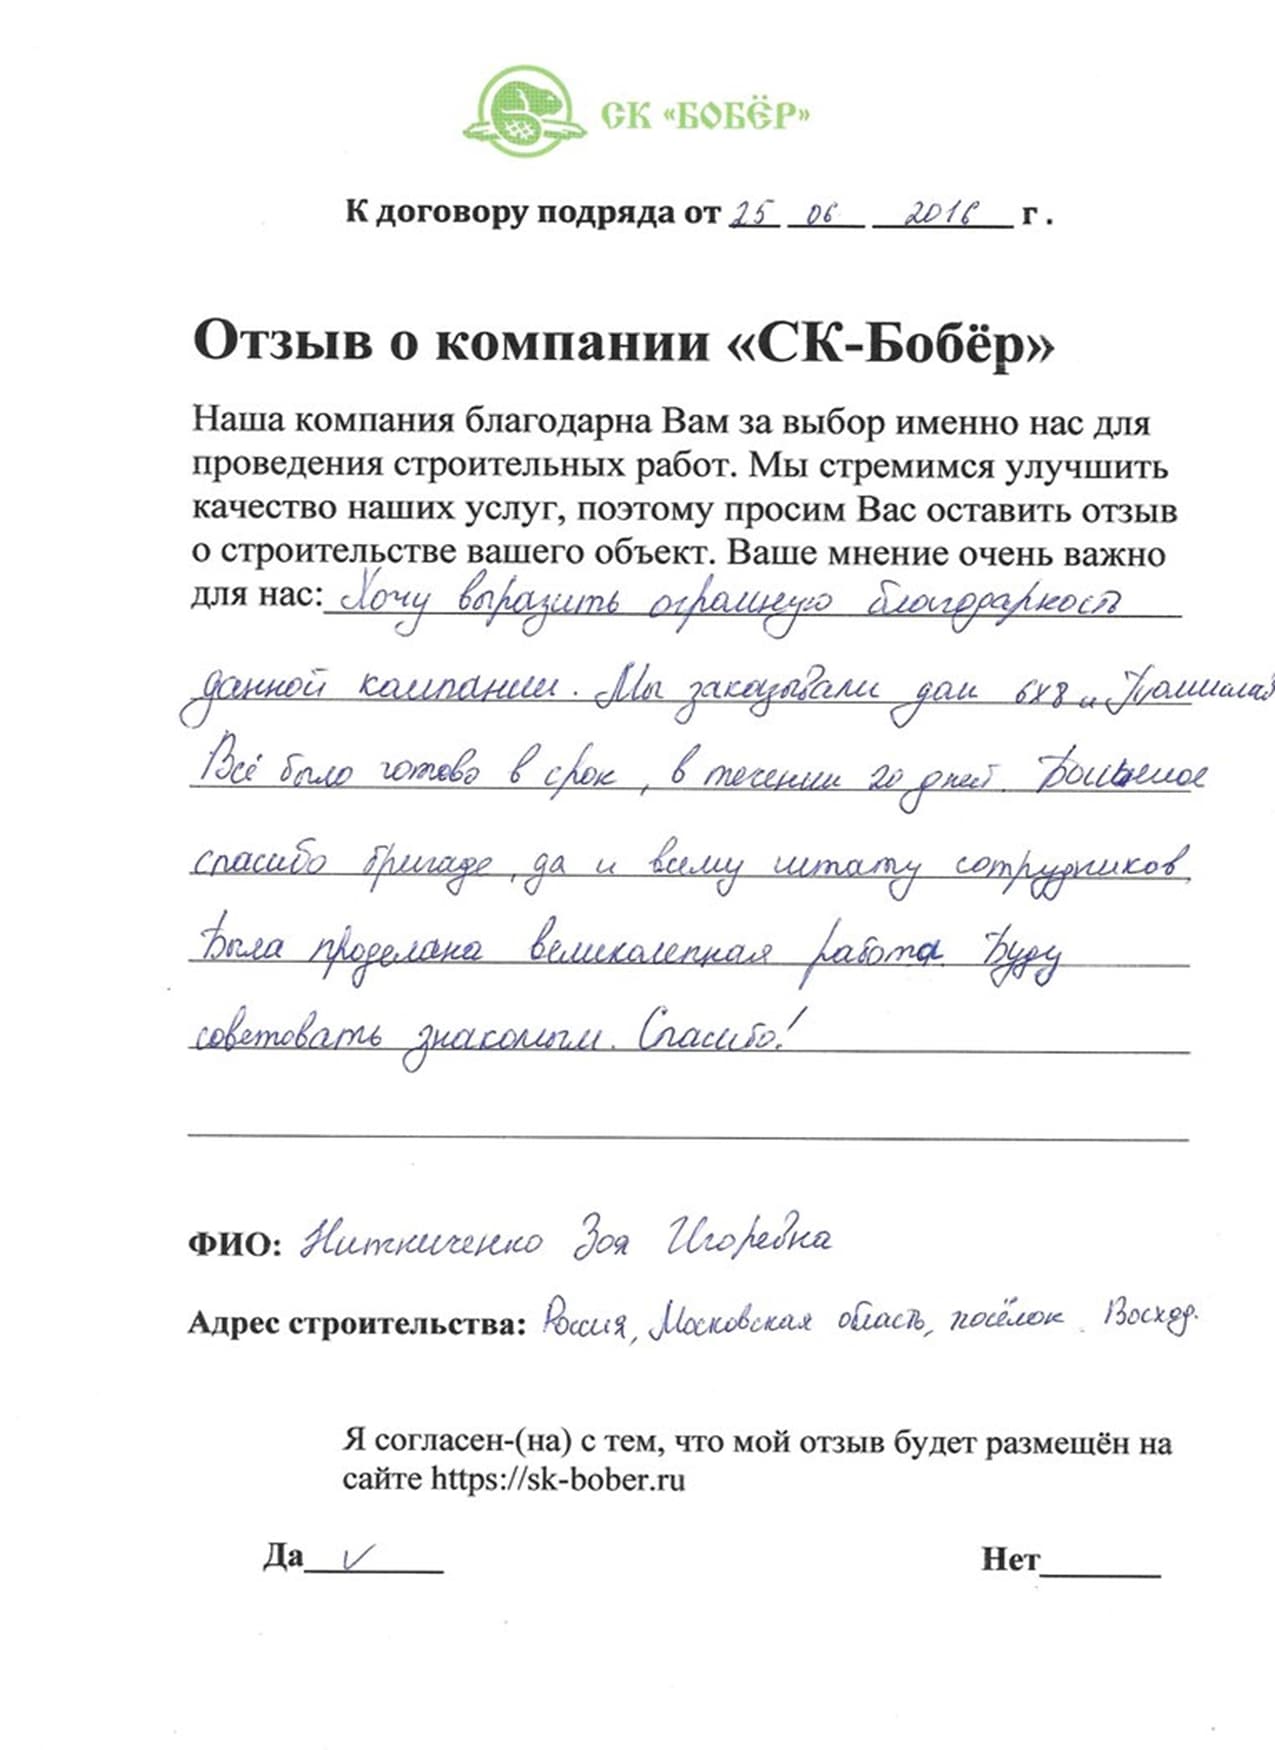 СК «БОБЁР»
К договору подряда от 25 06 2016 г .
Отзыв о компании «СК-Бобёр»
Наша компания благодарна Вам за выбор именно нас для
проведения строительных работ. Мы стремимся улучшить
качество наших услуг, поэтому просим Вас оставить отзыв
о строительстве вашего объект. Ваше мнение очень важно
для нас: Хочу выразить огромную благодарность
данной компании. Мы заказывали дом 6х8
Всё было готово в срок, в течении 20 дней. Большое
спасибо бригаде, да и всему штату сотрудников.
Была проделана великолепная работа. Буду
советовать знакомым. Спасибо!
ФИО: Зоя Игоревна
Адрес строительства: Россия, Московская область, посёлок Восход.
Я согласен-(на) с тем, что мой отзыв будет размещён на
сайте https://sk-bober.ru
Да ✓ Нет